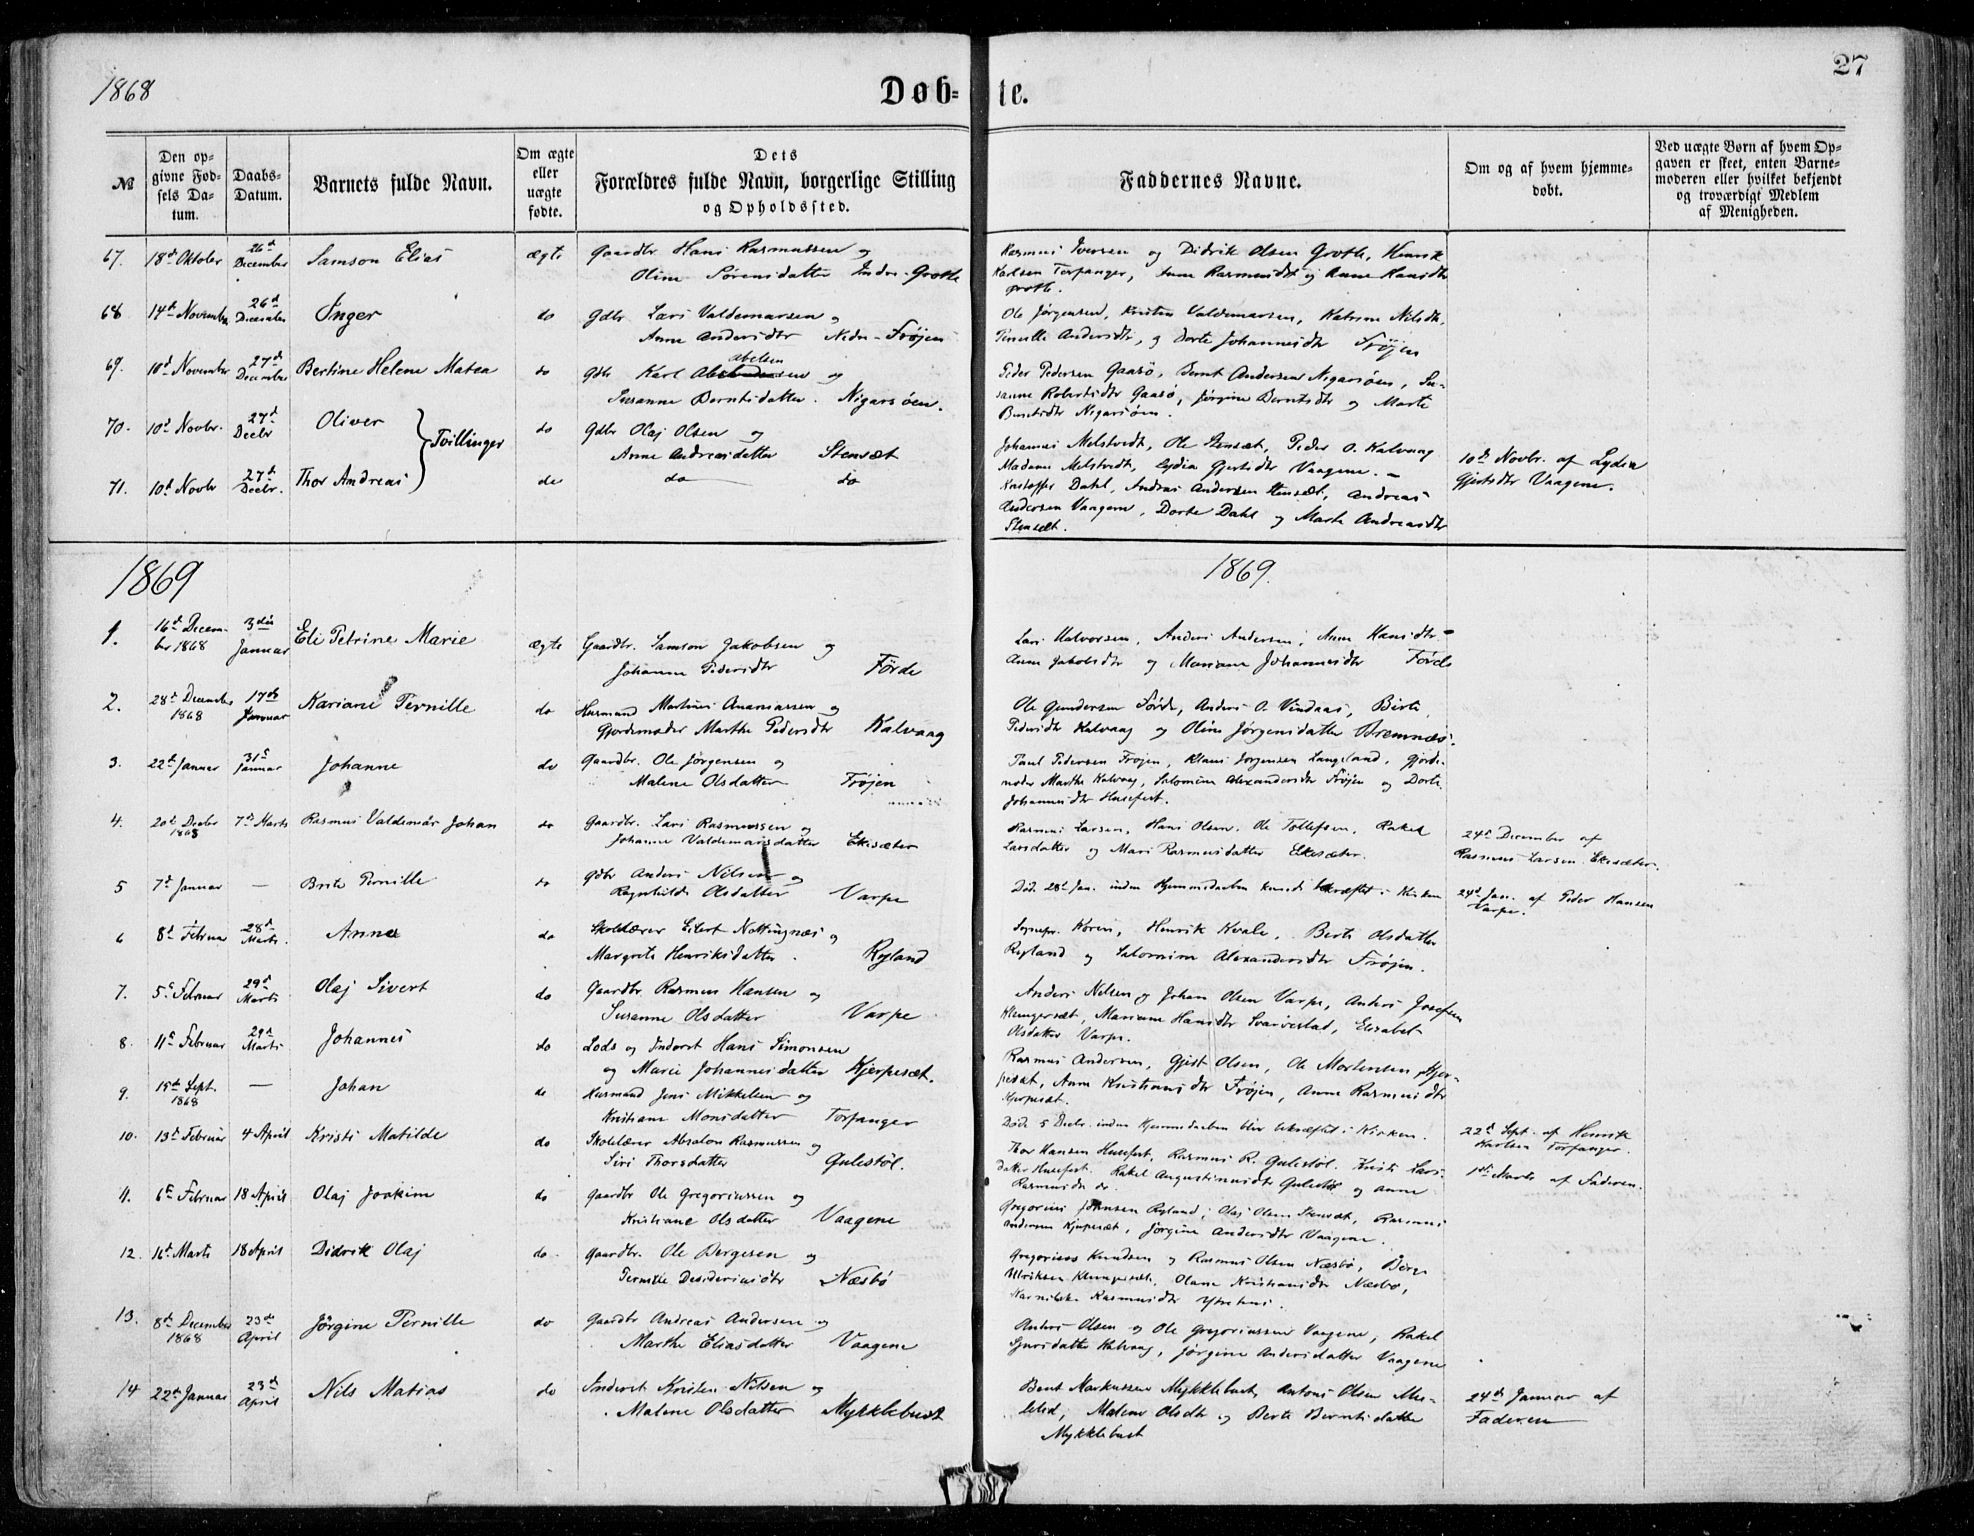 1868
Døb=
te.
27
№
Den op=
givne Fød=
sels Da=
tum.
Daabs-
Datum.
Barnets fulde Navn.
Om ægte
eller
uægte
fødte.
Dets
Forældres fulde Navn, borgerlige Stilling
og Opholdssted.
Faddernes Navne.
Om og af hvem hjemme-
døbt.
Ved uægte Børn af hvem Op-
gaven er skeet, enten Barne-
moderen eller hvilket bekjendt
og troværdigt Medlem
af Menigheden.
67. 18d Oktober 26d December Samson Elias ægte Gaardbr Hans Rasmussen og
Oline Sørensdatter Indre-Grotle
Rasmus Iversen og Didrik Olsen Grotle, Henrik
Karlsen Torfanger, Anne Rasmusdt og Anne Hansdtr
Grotle.
68 14d November 26d December Inger do Gdbr Lars Valdemarsen og
Anne Andersdtr Nedre-Frøjen
Ole Jørgensen, Kristen Valdemarsen, Katrine Nilsdt,
Pernille Andersdtr, og Dorte Johannesdtr Frøjen
69. 10d November 27d December Bertine Helene Matea do Gdbr Karl Abelsen og
Susanne Berntsdatter. Nigarsøen.
Peder Pedersen Gaasø, Bernt Andersen Nigarsøen, Su-
sanne Robertsdtr Gaasø, Jørgine Berntsdtr og Marte
Berntsdtr Nigarsøen.
70. 10d Novbr. 27d Decbr Oliver Tvillinger do Gdbr Olaj Olsen og
Anne Andreasdatter Stensæt
Johannes Melstvedt, Ole Stensæt, Peder O. Kalvaag
Madame Melstvedt, Lydia Gjertsdtr Vaagene. -
10d Novbr. af Lydia
Gjertsdtr Vaagene.
71. 10d Novbr 27d Decbr. Thor Andreas do do do
Kristoffer Dahl, Andreas Andersen Stensæt, Andreas
Andersen Vaagene, Dorte Dahl og Marte Andreasdtr
Stensæt.
1869
1869.
1. 16d Decem-
ber 1868 3die Januar Eli Petrine Marie ægte Gaardbr. Samson Jakobsen og
Johanne Pedersdtr Førde
Lars Halvorsen, Anders Andersen, Anne Hansdtr
Anne Jakobsdtr og Mariane Johannesdtr Førde
2. 28d December
1868 17de Januar Kariane Pernille do Husmand Martinus Ananiassen og
Gjordemoder Marthe Pedersdtr Kalvaag
Ole Gundersen Førde, Anders O. Vindaas, Birte
Pedersdtr Kalvaag og Oline Jørgensdatter Bremnæs.
3. 22d Januar 31d Januar Johanne do Gaardbr. Ole Jørgensen og
Malene Olsdatter Frøjen
Paul Pedersen Frøjen, Klaus Jørgensen Langeland, Gjorde-
moder Marthe Kalvaag, Salomine Alexandersdtr Frøjen og Dorte
Johannesdtr Husefest.
4. 20d Decbr
1868 7d Marts Rasmus Valdemar Johan do Gaardbr. Lars Rasmussen og
Johanne Valdemarsdatter Ekesæter
Rasmus Larsen, Hans Olsen, Ole Tollefsen, Rakel
Larsdatter og Mari Rasmusdatter Ekesæter.
24d December af
Rasmus Larsen Ekesæter.
5 7d Januar - Brite Pernille do Gdbr Anders Nilsen og
Ragnhilde Olsdatter Varpe
Død 28d Jan. inden Hjemmedaaben kunde bekræftes i Kirken
24d Jan. af Peder Hansen
Varpe.
6 8d Februar 28d Marts. Anna do Skolelærer Eilert Nottingnæs og
Margrete Henriksdatter. Rylând
Sognepr. Koren, Henrik Kvale, Berte Olsdatter
Ryland og Salomine Alexandersdtr Frøjen.
7. 5d Februar 29d Marts Olaj Sivert do Gaardbr. Rasmus Hansen og
Susanne Olsdatter Varpe
Anders Nilsen og Johan Olsen Varpe, Anders Josefsen
Klungersæt, Mariane Hansdtr Svarvestad, Elisabet
Olsdatter Varpe.
8. 11d Februar 29d Marts Johannes do Lods og Inderst Hans Simonsen
og Marie Johannesdatter Kjerpesæt.
Rasmus Andersen, Gjert Olsen, Ole Mortensen Kjer-
pesæt, Anne Kristiansdtr Frøjen, Anne Rasmusdtr
Kjerpesæt.
9. 15d Sept.
1868 - Johan do Husmand Jens Mikkelsen og
Kristiane Monsdatter Torfanger
Døde 5 Decbr. inden Hjemmedaaben blev bekræftet i Kirken.
22d Sept. af Henrik
Karlsen Torfanger.
10. 13d Februar 4 April Kristi Matilde do Skolelærer Absalon Rasmussen og
Siri Thorsdatter Gulestøl.
Thor Hansen Husefest, Rasmus R. Gulestøl. Kristi Lars-
datter Husefest. Rakel Augustinusdtr Gulestøl og Anne
Rasmusdtr do.
1ste Marts af Faderen.
11. 6d Februar 18 April Olaj Joakim do Gaardbr Ole Gregoriussen og
Kristiane Olsdatter Vaagene
Gregorius Johnsen Ryland, Olaj Olsen Stensæt, Rasmus
Andersen Kjerpesæt, Jørgine Andersdtr Vaagene.
12. 16d Marts 18 April Didrik Olaj do. Gaardbr. Ole Bergesen og
Pernille Desideriusdtr Næsbø
Gregorius Knudsen og Rasmus Olsen Næsbø, Berge
Ulriksen Klungersæt, Olane Kristiansdtr Næsbø,
Rasmusdtr
13. 8d December
1868 23d April Jørgine Pernille do Gaardbr Andreas Andersen og
Marthe Eliasdatter Vaagene
Anders Olsen og Ole Gregoriussen Vaagene, Rakel
Sjursdatter Kalvaag, Jørgine Andersdatter Vaagene
14 22d Januar 23d April Nils Matias do Inderst Kristen Nilsen og
Malene Olsdatter Myklebust
Bent Markussen Myklebust, Antoni Olsen Me-
lilæd, Malene Olsdtr og Berte Berntsdatter
Myklebust
24d Januar af
Faderen